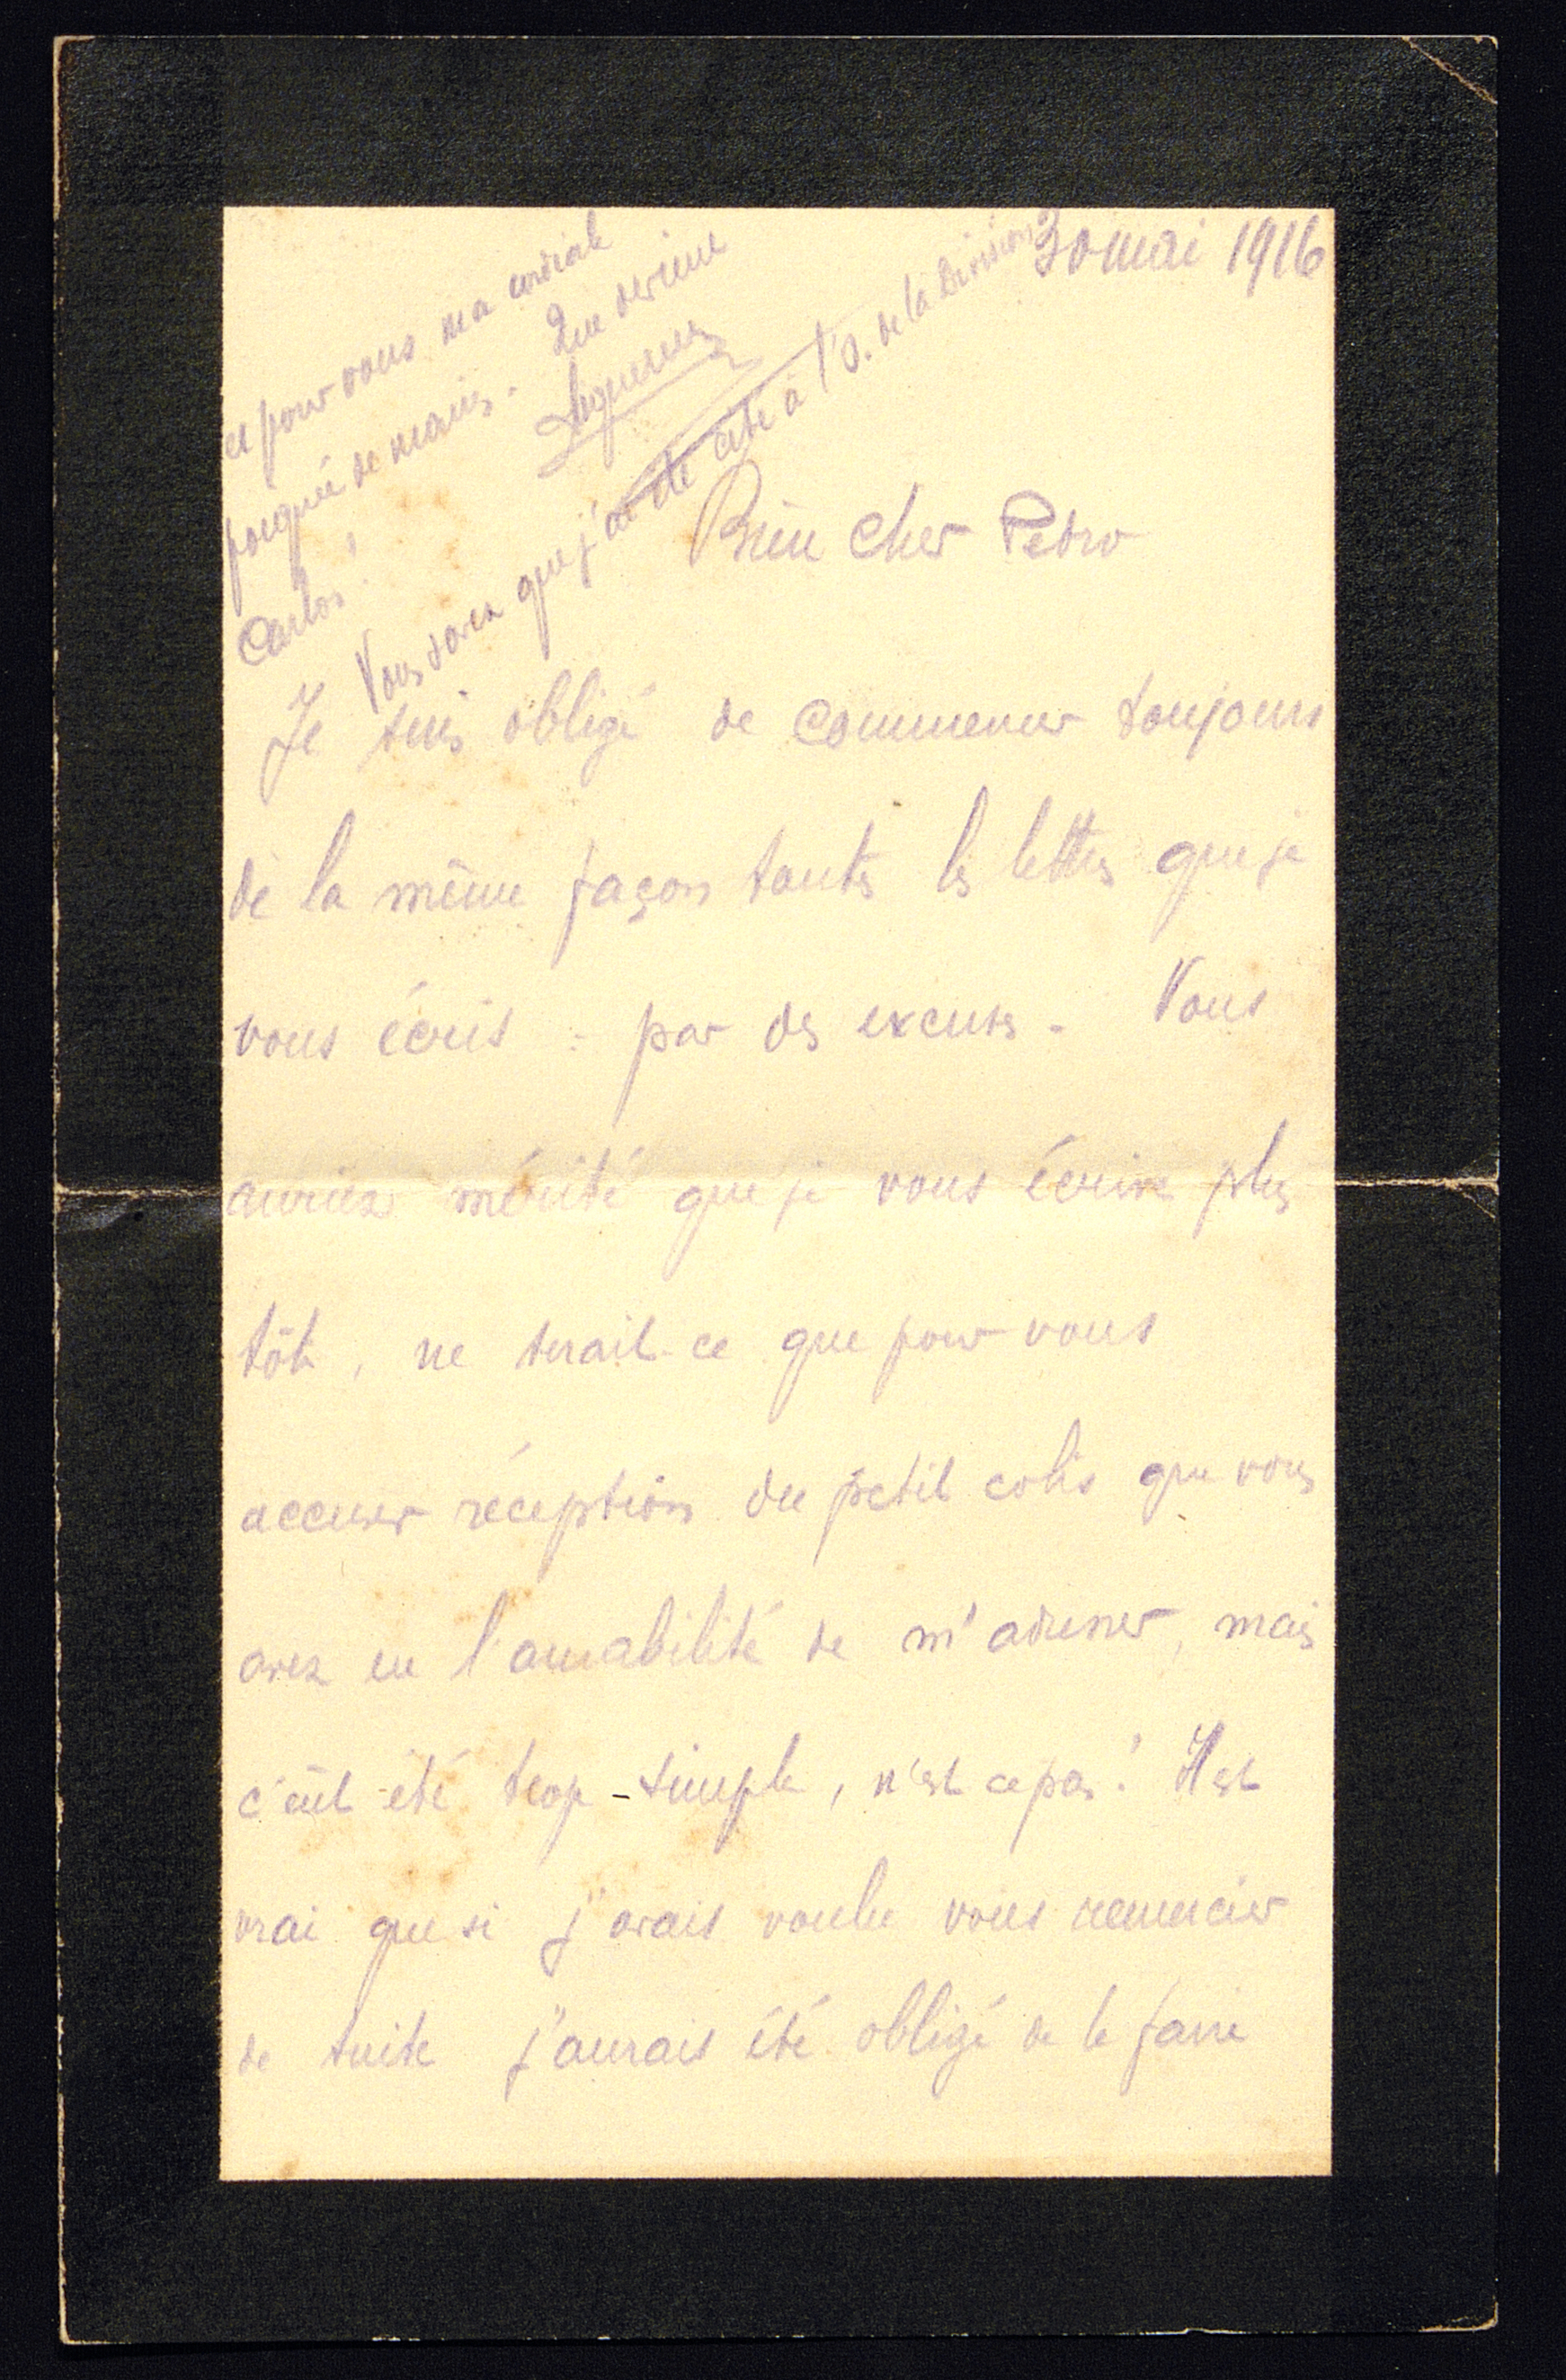 30 mai 1916
et pour vous ma cordiale
poignée de mains. Que devient
Carlos !
Vous savez que j'ai été cité à l'O. de la Division
Bien cher Pedro
Je suis obligé de commencer toujours
de la même façon toutes les lettres que je
vous écris : par des excuses. Vous
auriez mérité que je vous écrive plus
tôt, ne serait-ce que pour vous
accuser réception du petit colis que vous
avez eu l'amabilité de m'adresser, mais
c'eût été trop simple, n'est ce pas ! Il est
vrai que si j'avais voulu vous remercier
de suite j'aurais été obligé de le faire